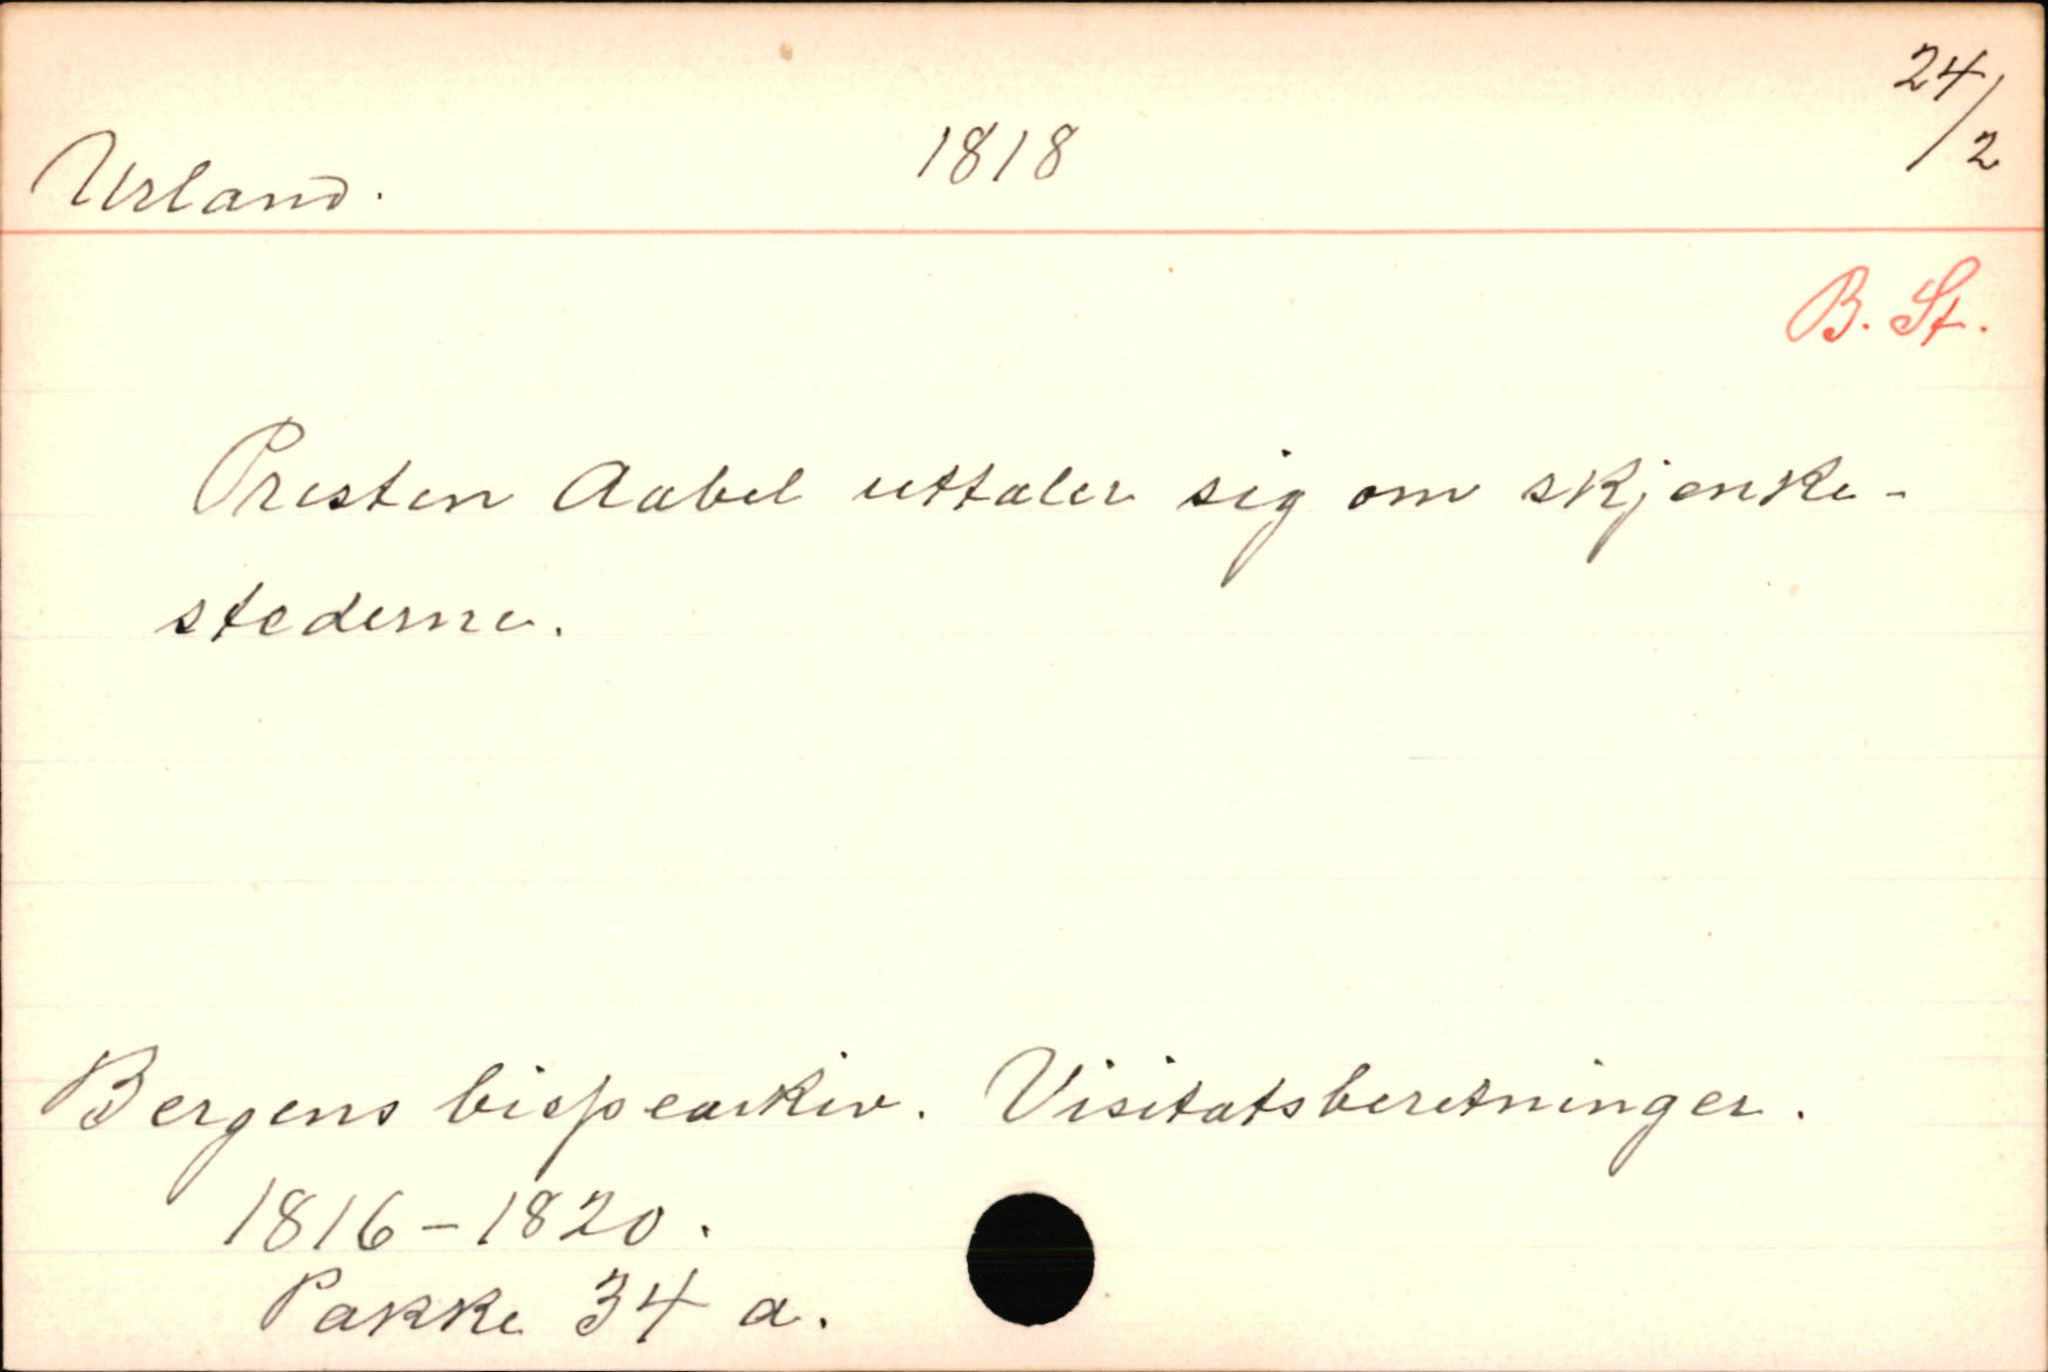 Urland. 1818 24/2
B. St.
Presten Aabel uttaler sig om skjenke-
stederne.
Bergens bispearkiv. Visitatsberetninger.
1816-1820.
Pakke 34 a.